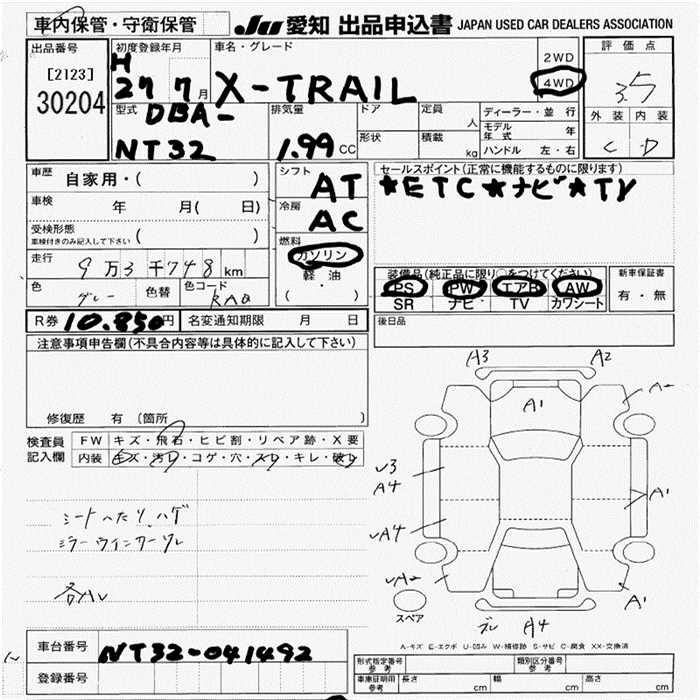 車内保管・守衛保管
JU 愛知 出品申込書 JAPAN USED CAR DEALERS ASSOCIATION
出品番号
[2123]
30204
初度登録年月
H
27 7月
車名・グレード
X-TRAIL
2WD
4WD
評価点
3.5
外装 内装
C D
型式
DBA-
NT32
排気量
1.99 CC
ドア
形状
定員
人
積載
kg
ディーラー・並行
モデル年式 年
ハンドル 左・右
車歴
自家用・( )
車検 年 月( 日)
受検形態
車検付きのみ記入して下さい ( )
走行 9万3千748km
色 グレー 色替 色コード KAD
シフト
AT
冷房
AC
燃料
ガソリン
軽油
( ・ )
セールスポイント(正常に機能するものに限ります)
★ETC★ナビ★TV
装備品(純正品に限り○をつけてください)
PS PW エアB AW
SR ナビ TV カワシート
新車保証書
有・無
R券 10.850円 名変通知期限 月 日
後日品
注意事項申告欄(不具合内容等は具体的に記入して下さい)
修復歴 有 (箇所 )
検査員
記入欄
FW キズ・飛石・ヒビ割・リペア跡・X要
内装 キズ・汚レ・コゲ・穴・スレ・キレ・破レ
シートへたり、ハゲ
ミラーウインカーワレ
A3 A2
A1
A2
A4
A1
A4
A2
A1
A4
スペア
A-キズ E-エクボ U-凹み W-補修跡 S-サビ C-腐食 XX-交換済
車台番号 NT32-041492
登録番号
形式指定番号
参考
類別区分番号
参考
車庫証明用
参考
長さ cm 幅 cm 高さ cm